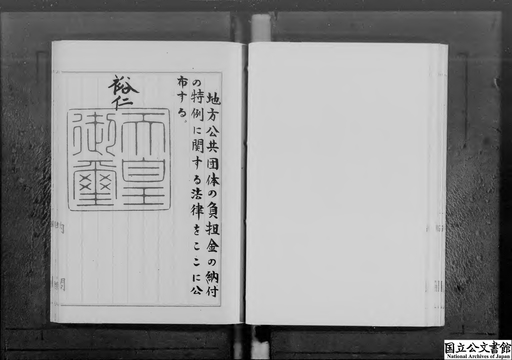 地方公共団体の負担金の納付
の特例に関する法律をここに公
布する。
裕仁
天皇
御璽
国立公文書館
National Archives of Japan